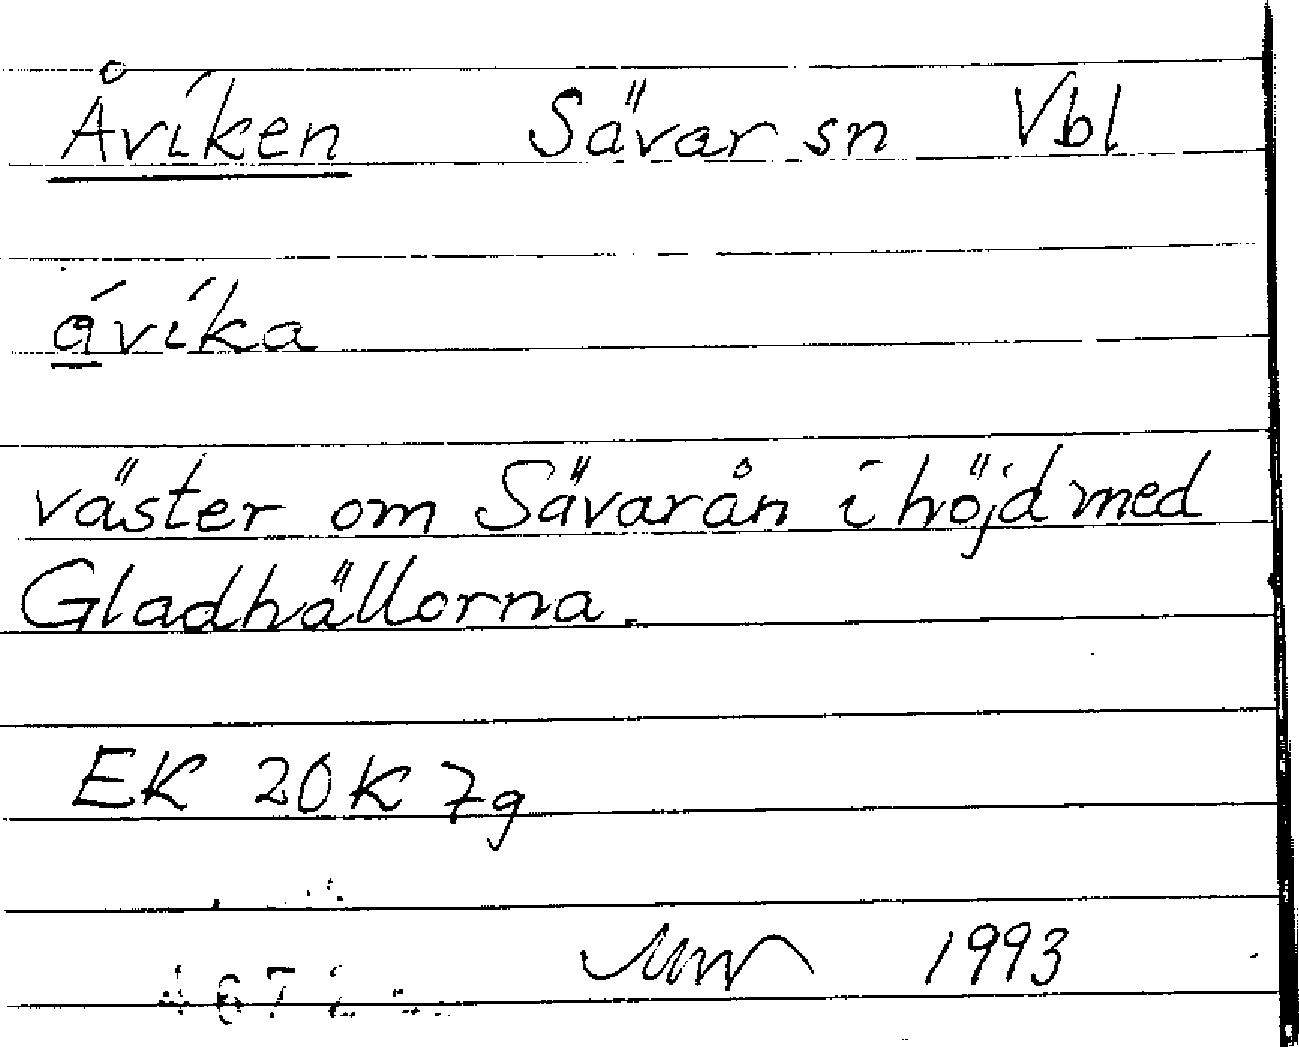 Åviken Sävar sn Vbl
ávika
väster om Sävarån i höjd med
Gladhällorna.
EK 20K 7g
1993